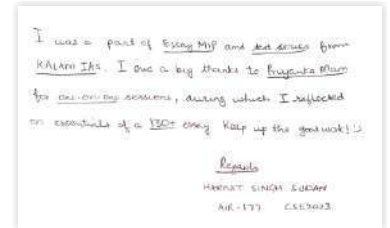 I was a part of Essay MIP and test series from
KALAM IAS. I owe a big thanks to Priyanka Mam
for one-on-one sessions, during which I reflected
on essentials of a 130+ essay Keep up the good work! :)
Regards
HARNIT SINGH SUDAN
AIR-177 CSE2023